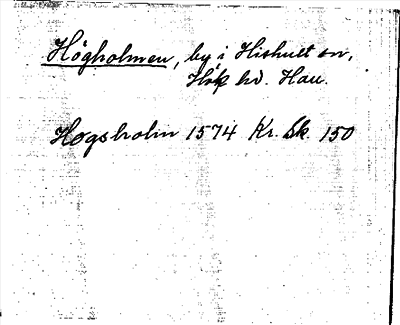 Högholmen, by i Hishult sn,
Hök hd. Hall.
Hogsholm 1574 Kr. Sk. 150